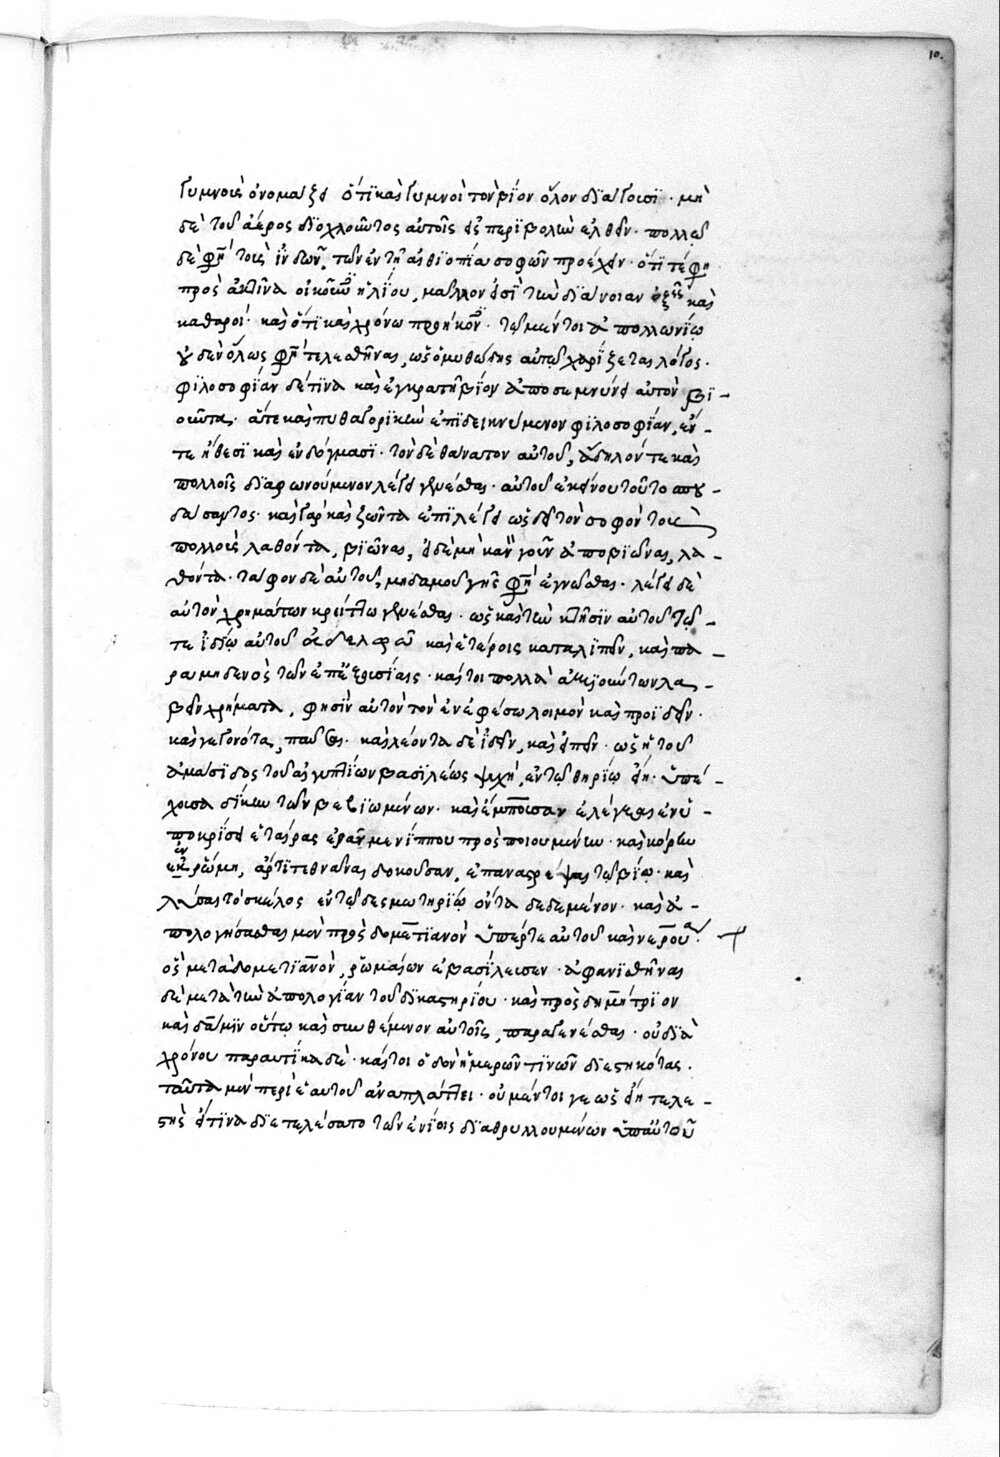 10.
γυμνοὺς ὀνομάζει ὅτι καὶ γυμνοὶ τὸν βίον ὅλον διάγουσι · μη
δὲ τοῦ ἀέρος διοχλοῦντος αὐτοῖς εἰς περιβολὴν ἐλθεῖν · πολλῷ
δὲ φησὶ τοὺς ἰνδῶν, τῶν ἐν τῇ αἰθιοπία σοφῶν προέχειν · ὅτι τέ φησι
πρὸς ἀκτῖνα οἰκοῦσιν ἡλίου, μᾶλλον εἰσὶ τὴν διάνοιαν ὀξεῖς καὶ
καθαροί · καὶ ὅτι καὶ χρόνω προήκουσιν · τῷ μέντοι ἀπολλωνίω
οὐδενὶ ὅλως φησὶ τελεσθῆναι, ὡς ὁ μυθώδης αὐτῷ χαρίζεται λόγος ·
φιλοσοφίαν δέ τινα καὶ ἐγκρατῆ βίον ἀποσεμνύνει αὐτὸν βι-
οῦντα · ἅτε καὶ πυθαγορικὴν ἐπιδεικνύμενον φιλοσοφίαν, ἔν-
τε ἤθεσι καὶ ἐν δόγμασι · τὸν δὲ θάνατον αὐτοῦ, ἄδηλόν τε καὶ
πολλοῖς διαφωνούμενον λέγει γενέσθαι · αὐτοῦ ἐκείνου τοῦτο σπου-
δάσαντος · καὶ γὰρ καὶ ζῶντα ἐπιλέγει ὡς δεῖ τὸν σοφὸν τοὺς
πολλοὺς λαθόντα, βιῶναι, εἰ δὲ μὴ κἂν γοῦν ἀποβιῶναι, λα-
θόντα · τάφον δὲ αὐτοῦ, μηδαμοῦ γῆς φησὶ ἐγνῶσθαι · λέγει δὲ
αὐτὸν χρημάτων κρείττω γενέσθαι · ὡς καὶ τὴν κτῆσιν αὐτοῦ τῷ-
τε ἰδίῳ αὐτοῦ ἀδελφῷ καὶ ἑτέροις καταλιπεῖν, καὶ πα-
ρὰ μηδενὸς τῶν ἐπ' ἐξουσίαις · καίτοι πολλὰ ἀξιούντων λα-
βεῖν χρήματα, φησὶν αὐτὸν τὸν ἐν ἐφέσω λοιμὸν καὶ προϊδεῖν ·
καὶ γεγονότα, παῦσαι · καὶ λέοντα δὲ ἰδεῖν, καὶ εἰπεῖν · ὡς ἡ τοῦ
ἀμάσιδος τοῦ αἰγυπτίων βασιλέως ψυχή, ἐν τῷ θηρίῳ εἴη · ὑπέ-
χουσα δίκην τῶν βεβιωμένων · καὶ ἔμπουσαν ἐλέγξαι ἐν ὑ-
ποκρίσει ἑταίρας ἐρᾶν μενίππου προσποιουμένην · καὶ κόρην
ἐν ῥώμη, ἄρτι τεθνάναι δοκοῦσαν, ἐπαναστρέψαι τῷ βίῳ · καὶ
λῦσαι τὸ σκέλος ἐν τῷ δεσμωτηρίῳ ὄντα δεδεμένον · καὶ ἀ-
πολογήσασθαι μὲν πρὸς δομετιανὸν ὑπέρ τε αὐτοῦ καὶ νερούα ·
ὃς μετὰ δομετιανὸν, ῥωμαίων ἐβασίλευσεν · ἀφανισθῆναι
δὲ μετὰ τὴν ἀπολογίαν τοῦ δικαστηρίου · καὶ πρὸς δημήτριον
καὶ δάμιν οὕτω καὶ συνθέμενον αὐτοῖς, παραγενέσθαι · οὐ διὰ
χρόνου παραυτίκα δὲ · καίτοι ὁδὸν ἡμερῶν τινῶν διεστηκότας ·
ταῦτα μὲν περὶ ἑαυτοῦ ἀναπλάττει · οὐ μέντοι γε ὡς εἴη τελε-
στὴς εἴ τινα διετελέσατο τῶν ἐνίοις διαθρυλλουμένων ὑπ' αὐτοῦ